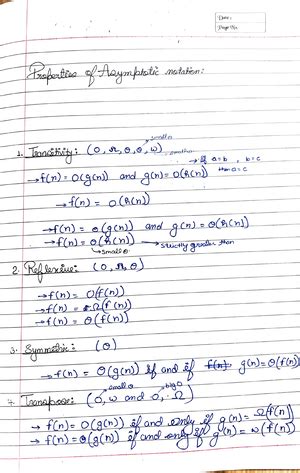 Date :
Page No.
Properties of Asymptotic notation:
1. Transitivity: (O, Ω, Θ, o, ω)
→ If a=b , b=c
then a=c
→ f(n) = O(g(n)) and g(n) = O(h(n))
→ f(n) = O(h(n))
→ f(n) = o(g(n)) and g(n) = o(h(n))
→ f(n) = o(h(n)) → strictly greater than
→ small o
2. Reflexive: (O, Ω, Θ)
→ f(n) = O(f(n))
→ f(n) = Ω(f(n))
→ f(n) = Θ(f(n))
3. Symmetric: (Θ)
→ f(n) = Θ(g(n)) if and if g(n) = Θ(f(n))
small o big O
4. Transpose: (o, ω and O, Ω)
→ f(n) = O(g(n)) if and only if g(n) = Ω(f(n))
→ f(n) = o(g(n)) if and only if g(n) = ω(f(n))